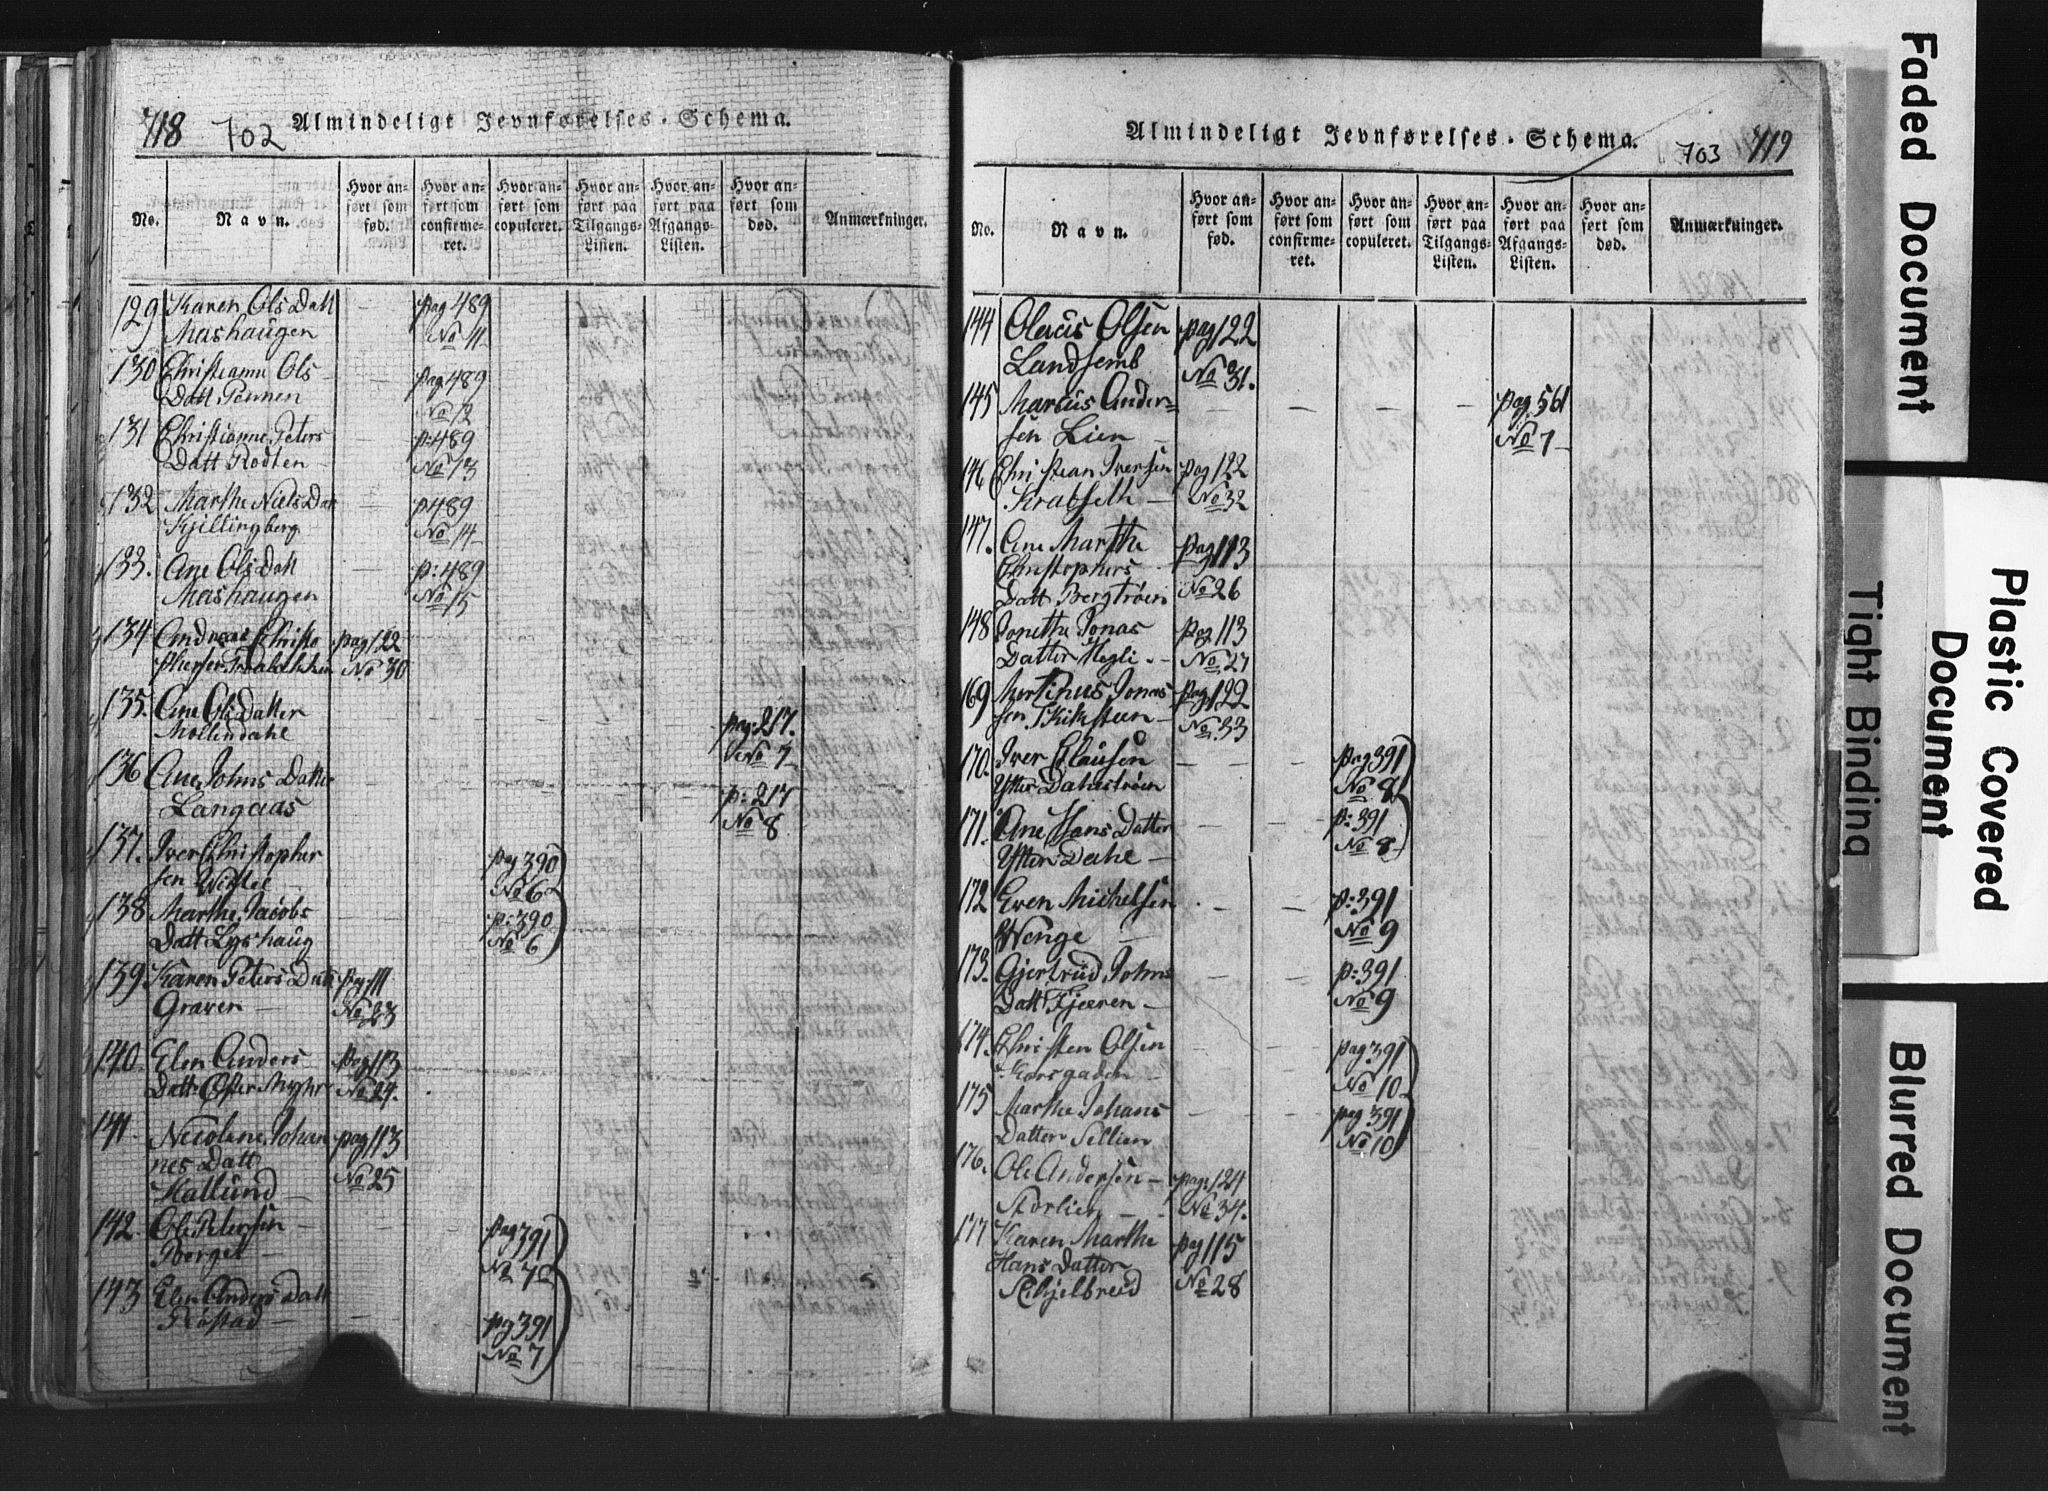 718 702 Almindeligt Jevnførelses-Schema.
No. Navn. Hvor anført som fød. Hvor anført som confirmeret. Hvor anført som copuleret. Hvor anført paa Tilgangs-Listen. Hvor anført paa Afgangs-Listen. Hvor anført som død. Anmærkninger.
129 Karen Ols Datt — pag 489
Mashaugen No 11
130 Christianne Ols — pag 489
Datt Pennen No 12
131 Christianne Peters — p:489
Datt Rodten No 13
132 Marthe Niels Datt — p489
Kjillingberg No 14
133. Ane Ols Datt — p:489
Mashaugen No 15
134 Andreas Christo pag 122
phersen No 30
135. Ane Ols Datter pag:217.
Mollindahl No 7
136 Ane Johns Datter p:217
Langaas No 8
137. Iver Christopher pag 390
sen No 6
138 Marthe Jacobs p:390
Datt Lyshaug No 6
139 Karen Peters Datt pag 111
Graven — No 23
140. Elen Anders pag 113
Datt Øster Myhr No 24.
141 Nicoline Johan pag 113
nes Datt No 25
Hallund
142. Ole Petersen pag 391
Berget — No 7
143 Elen Anders Datt pag 391
Rostad — No 7
Almindeligt Jevnførelses-Schema. 703 719
No. Navn. Hvor anført som fød. Hvor anført som confirmeret. Hvor anført som copuleret. Hvor anført paa Tilgangs-Listen. Hvor anført paa Afgangs-Listen. Hvor anført som død. Anmærkninger.
144 Olaus Olsen pag 122
Landsemb No 31.
145 Marcus Ander= — — — — pag 561
sen Lien — No 7
146 Christian Iversen pag 122
Krabseth — No 32
147. Ane Marthe pag 113
Christophers No 26
Datt Bergtrøen
148 Jonethe Jonas pag 113
Datter Hegli — No 27
169 Martinus Jonas pag 122
sen — No 33
170. Iver Clausen — — pag 391
Ytter Dahlstrøen No 8
171. Ane Hans Datter — — p:391
Ytter Dahl — No 8
172 Even Michelsen — — p:391
Wenge — No 9
173. Gjertrud Johns — — p:391
Datt Fjæren — No 9
174. Christen Olsen pag 391
Korsgaden — No 10
175 Marthe Johans — — pag 391
Datter Sellien No 10
176. Ole Andersen — pag 124
Storlien — — No 34.
177 Karen Marthe pag 115
Hans Datter No 28
Skjelbreed
Faded Document
Tight Binding
Plastic Covered
Document
Blurred Document